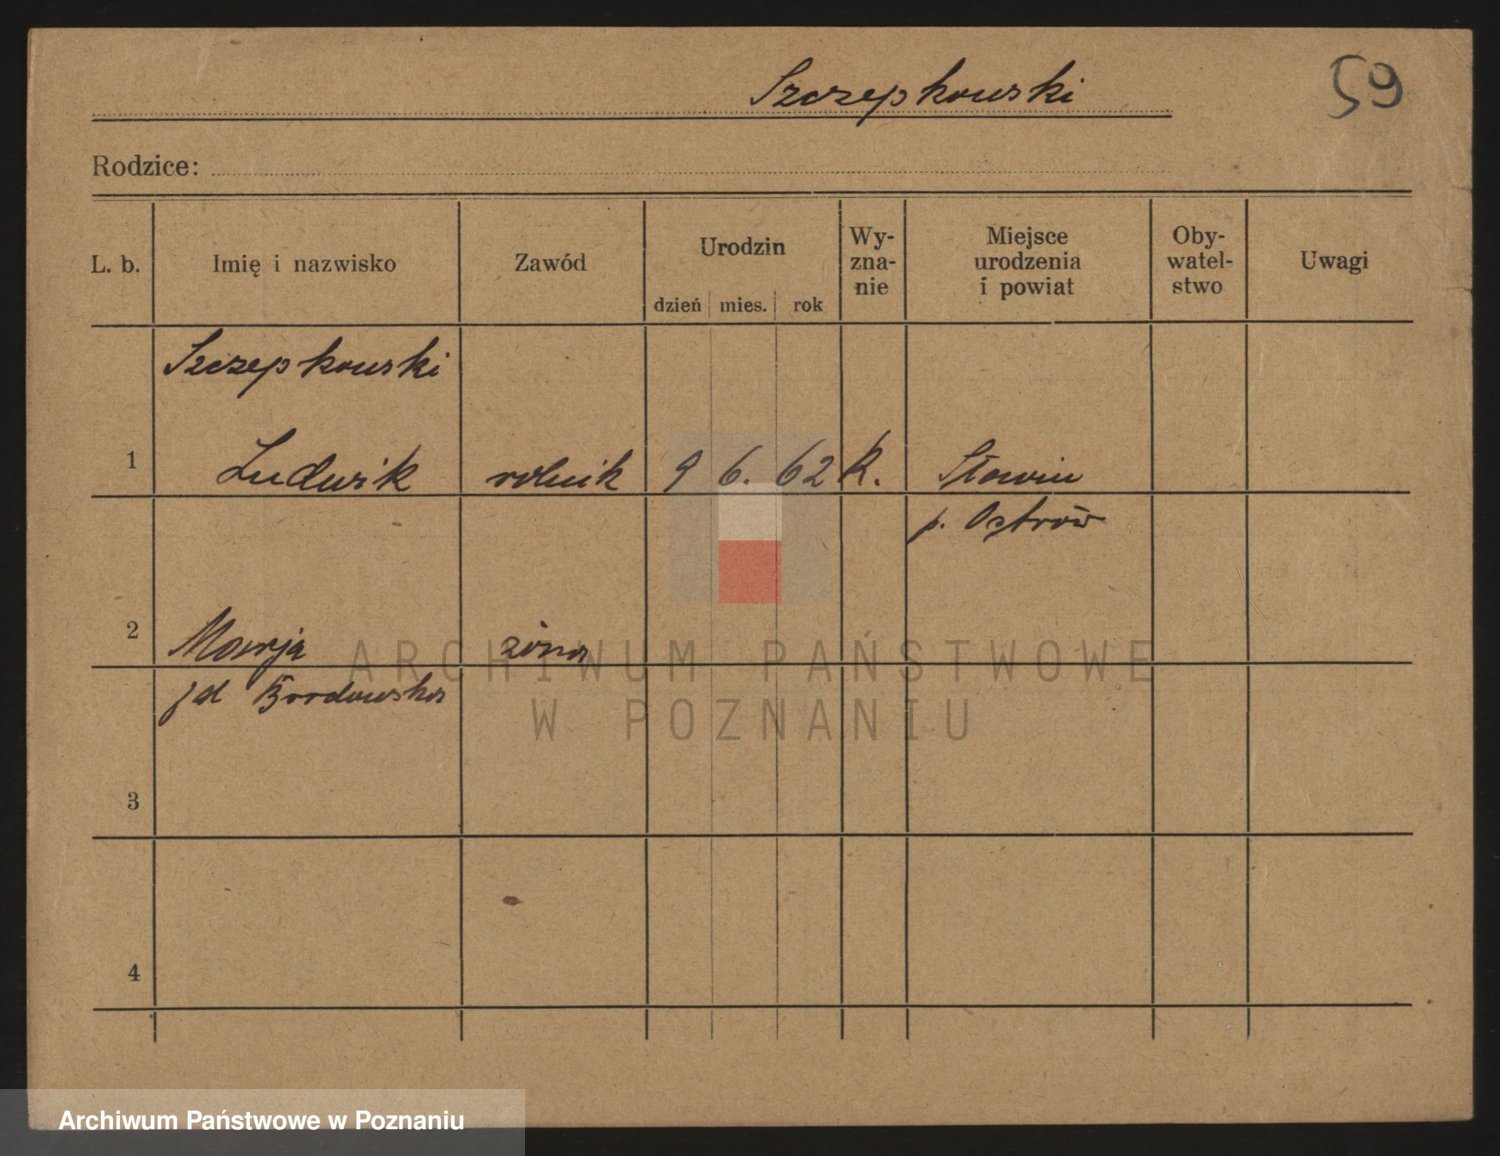 Szczepkowski
59
Rodzice:
L. b.
Imię i nazwisko
Zawód
Urodzin
dzień mies. rok
Wy-
zna-
nie
Miejsce
urodzenia
i powiat
Oby-
watel-
stwo
Uwagi
Szczepkowski
1 Ludwik rolnik 9 6. 62 k. Słowin
p. Ostrów
2 Marja żona
3
4
ARCHIWUM PAŃSTWOWE
W POZNANIU
Archiwum Państwowe w Poznaniu